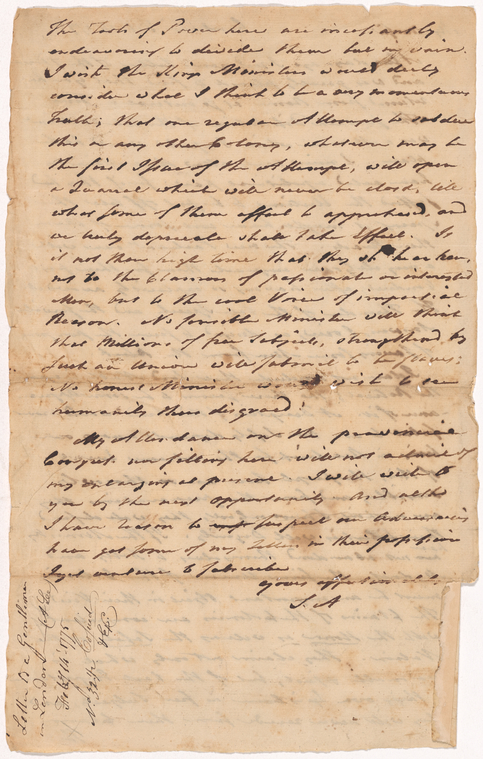 The Tools of Power here are incessantly
endeavoring to divide them but in vain.
I wish the Kings Ministers would duly
consider what I think to be a very momentous
Truth; that one regular Attempt to subdue
this or any other Colony, whatever may be
the first Issue of the Attempt, will open
a Quarrel which will never be closd, till
what some of them affect to apprehend, and
we truly deprecate shall take Effect. Is
it not then high time that they shd hearken,
not to the Clamors of passionate or interested
Men, but to the cool Voice of impartial
Reason. No sensible Minister will think
that Millions of free Subjects, strengthend by
such an Union will submit to be slaves;
No honest Minister would wish to see
humanity thus disgracd.
My Attendance on the provincial
Congress now sitting here will not admit of
my enlarging at present. I will write to
you by the next opportunity. And altho
I have Reason to suspect our Adversaries
have got some of my Letters in their possession
I yet venture to subscribe
yours affectionately
S. A
Letter to a Gentleman
in London
Feby 14th 1775
No 324